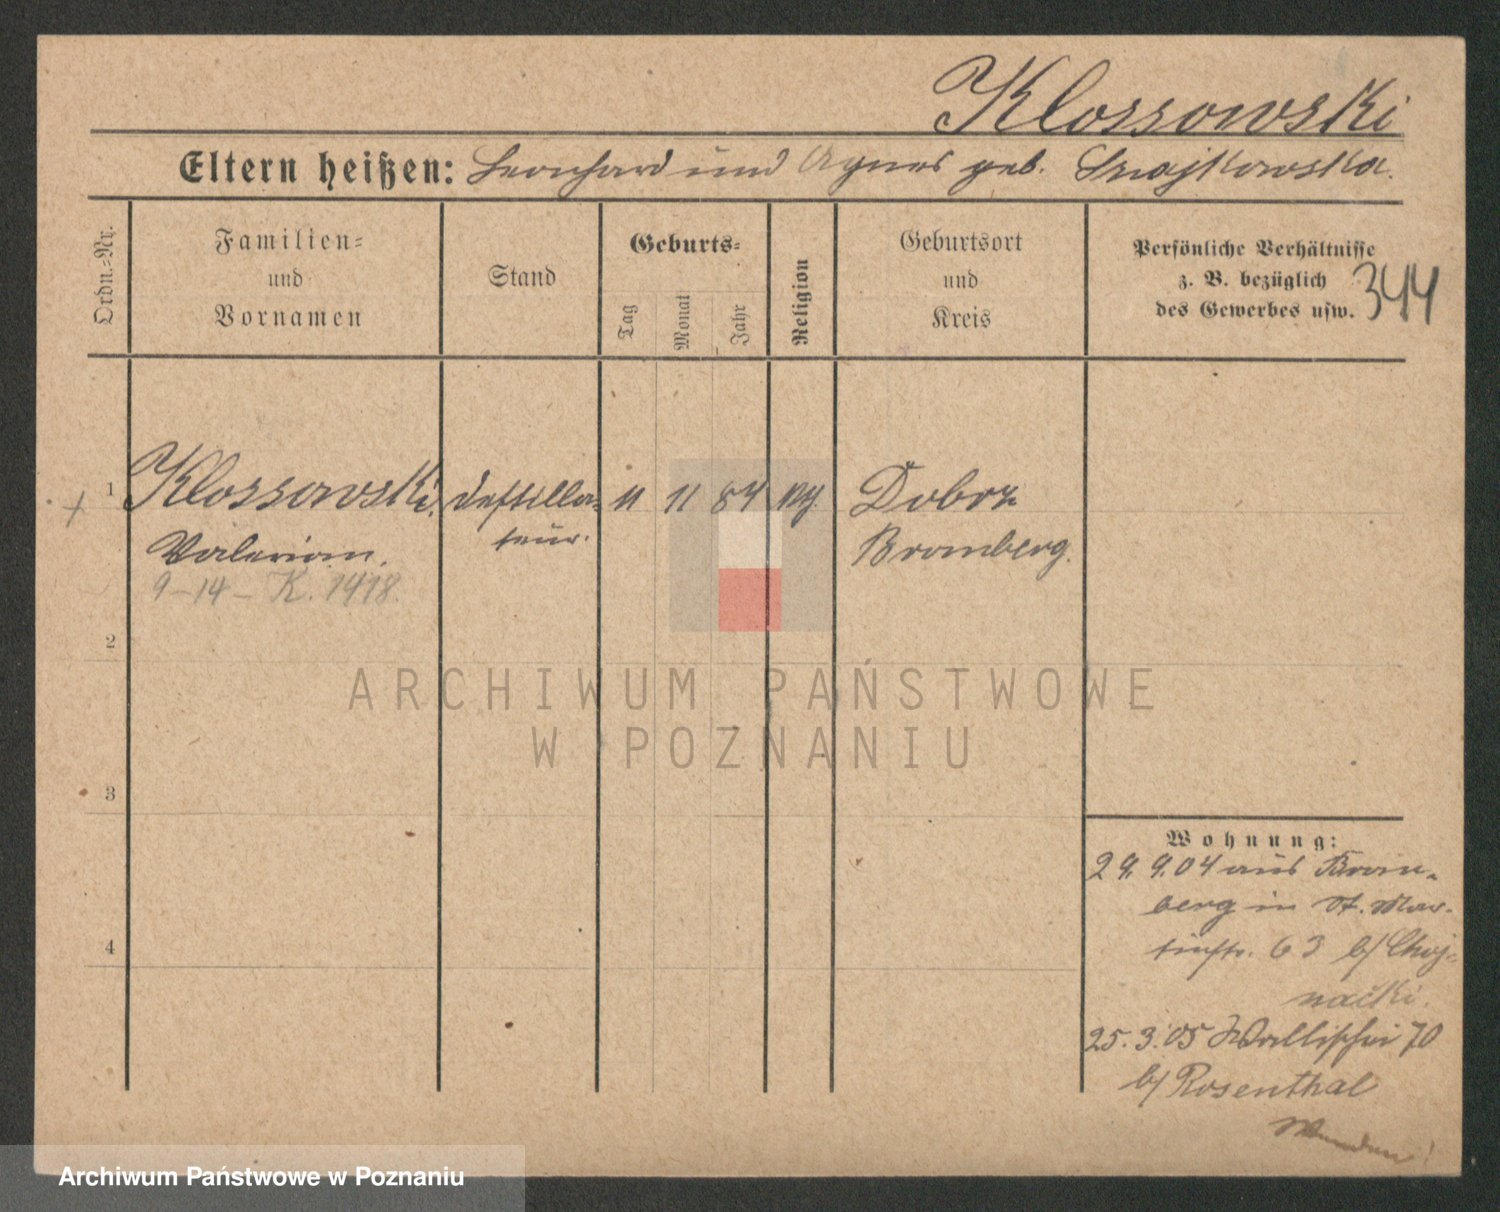 Klossowski
Eltern heißen: Leonhard und Agnes geb. Szajkowska.
Ordn.-Nr.
Familien-
und
Vornamen
Stand
Geburts-
Tag
Monat
Jahr
Religion
Geburtsort
und
Kreis
Persönliche Verhältnisse
z. B. bezüglich
des Gewerbes usw.
344
+ 1 Klossowski, Destilla- 11 11 84 Dobrz
Valerian. teur. Bromberg.
9-14- K. 1418.
2
3
4
ARCHIWUM PAŃSTWOWE
W POZNANIU
Wohnung:
29. 9. 04 aus Brom-
berg in St. Mar-
tinstr. 63 b/ Choj-
nacki.
25. 3. 05 Wallischei 70
b/ Rosenthal
Archiwum Państwowe w Poznaniu